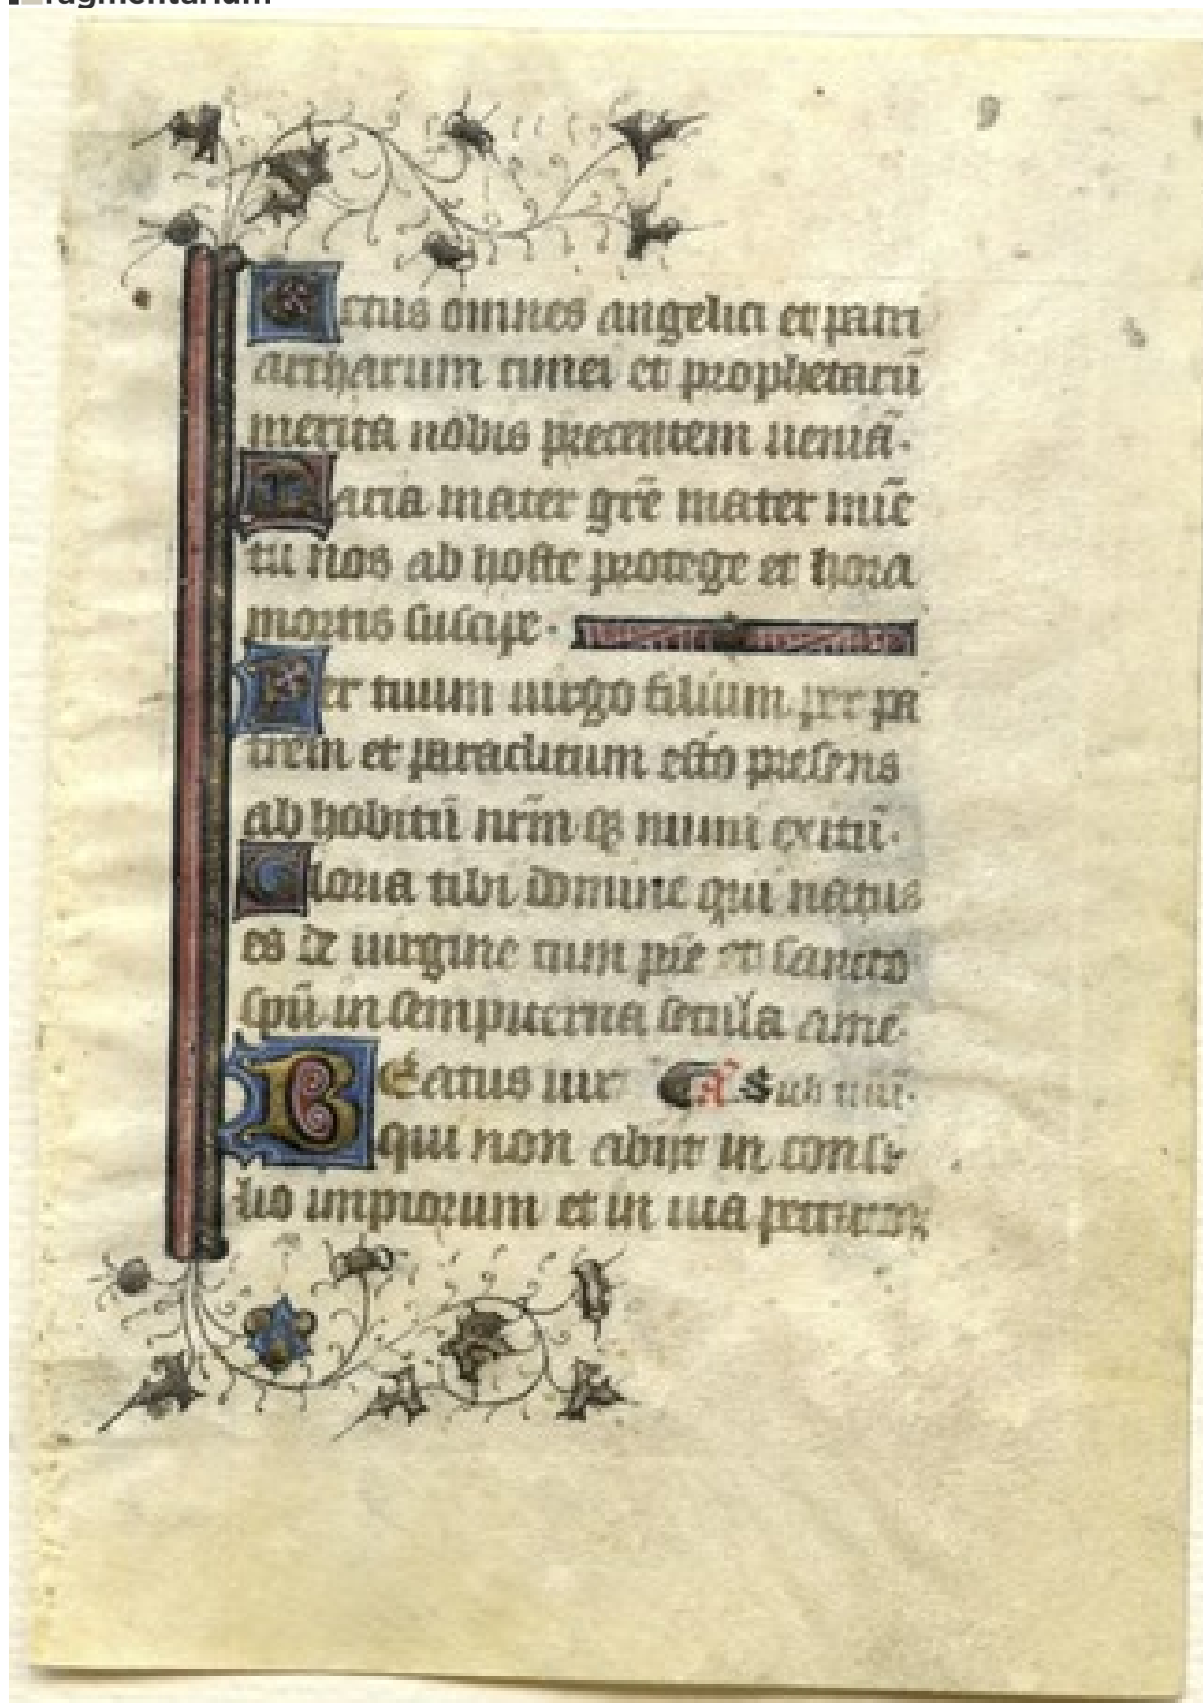 ragmentarium
Cetus omnes angelici et patri
archarum cunei et prophetarū
merita nobis precentem ueniā.
Maria mater grē mater mīe
tu nos ab hoste protege et hora
mortis suscipe.
Per tuum uirgo filium per pa
trem et paraclitum esto presens
ad hobitū nrm̄ qꝫ numi exitū.
Gloria tibi domine qui natus
es de uirgine cum pr̄e et sancto
spū in sempiterna secula amē.
Beatus uir A Sub
qui non abijt in consi
lio impiorum et in uia